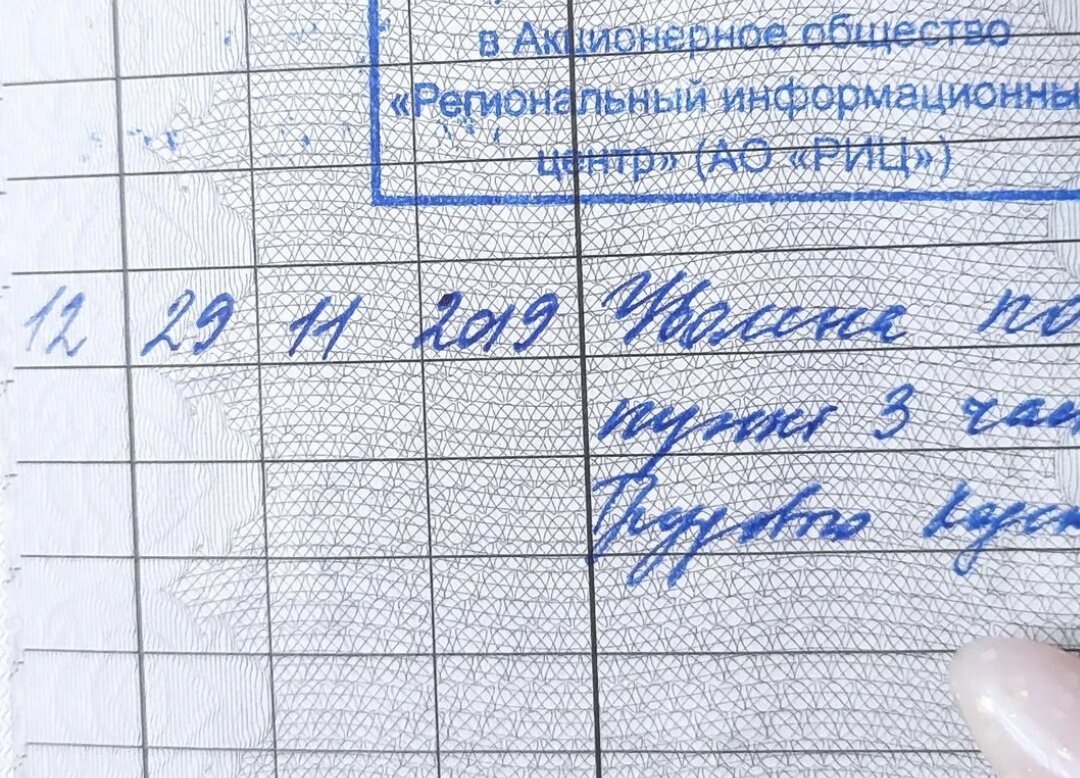 в Акционерное общество
«Региональный информационны
центр» (АО «РИЦ»)
12 29 11 2019 Уволена по
пункт 3 час
Трудового кодек